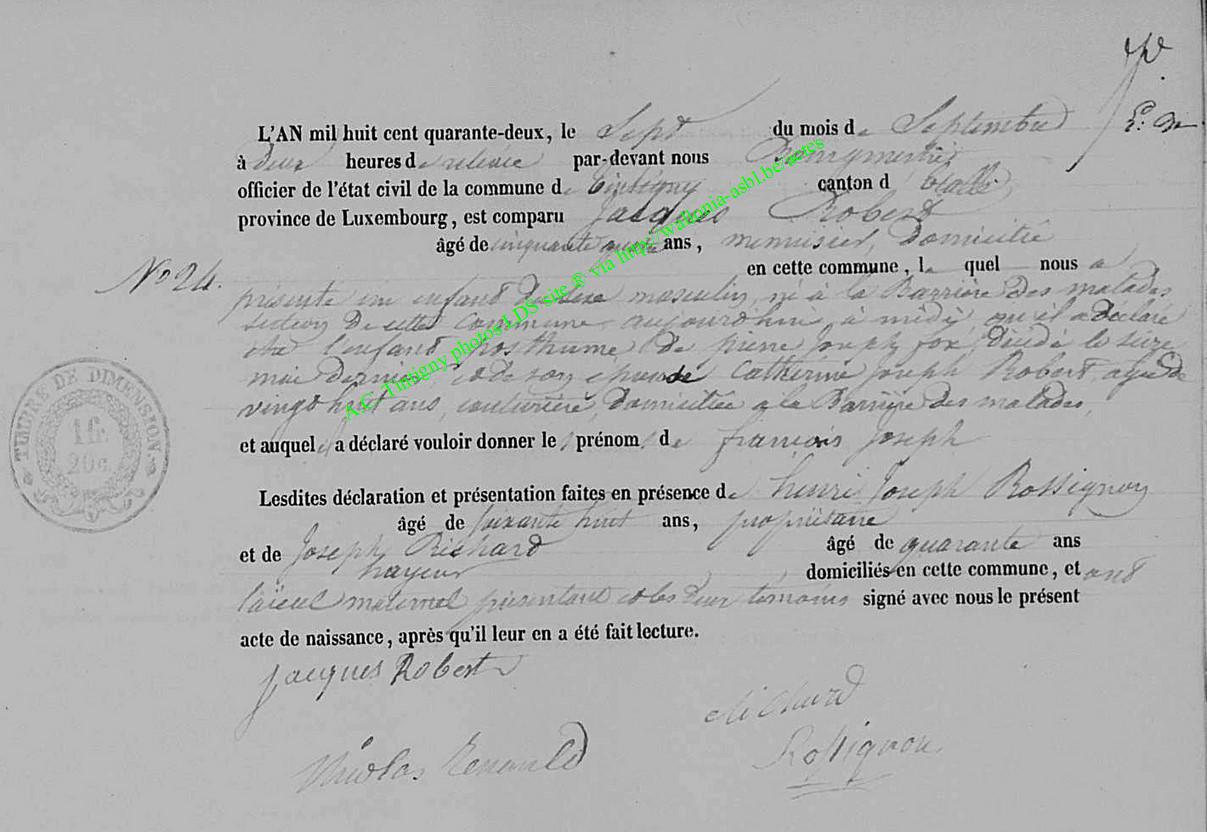 N° 24.
L'AN mil huit cent quarante-deux, le Sept du mois de Septembre
à deux heures de relevée par-devant nous Bourgmestre
officier de l'état civil de la commune de Tintigny canton d'Etalle
province de Luxembourg, est comparu Jacques Robert
âgé de cinquante ans, menuisier, domicilié
en cette commune, lequel nous a
présenté un enfant du sexe masculin, né à la Barrière des malades
section de cette commune aujourd'hui à midi qu'il a déclaré
être l'enfant posthume de décédé le
mai dernier et de son épouse Catherine Joseph Robert agée de
vingt huit ans, couturière, domiciliée à la Barrière des malades,
et auquel il a déclaré vouloir donner les prénoms de françois Joseph
Lesdites déclaration et présentation faites en présence de henri Joseph Rossignon
âgé de soixante huit ans, propriétaire
et de Joseph Richard âgé de quarante ans
domiciliés en cette commune, et ont
l'aïeul maternel présentant et les deux témoins signé avec nous le présent
acte de naissance, après qu'il leur en a été fait lecture.
Jacques Robert
Richard
Nicolas Renauld
Rossignon
TIMBRE DE DIMENSION
1 fr.
20 c.
A.G. Tintigny photos LDS site ® via http://wallonia-asbl.be/actes